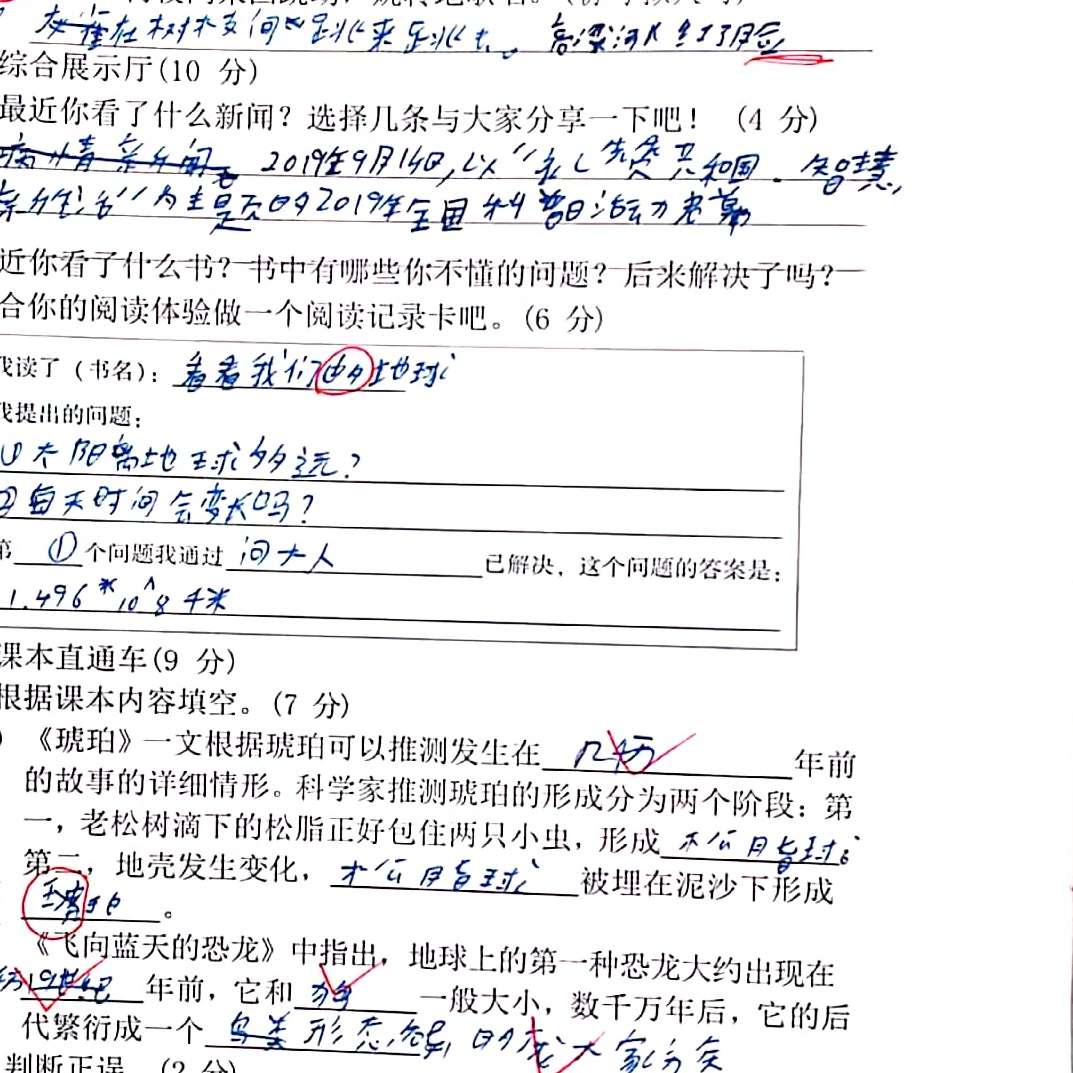 灰雀在树木支间跳来跳去。
综合展示厅(10 分)
最近你看了什么新闻？选择几条与大家分享一下吧！ (4 分)
2019年9月14日,以“礼赞共和国、智慧
生活”为主题的2019年全国科普日活动启幕
近你看了什么书？书中有哪些你不懂的问题？后来解决了吗？
合你的阅读体验做一个阅读记录卡吧。(6 分)
我读了（书名）：看看我们的地球
我提出的问题：
①太阳离地球多远？
②每天时间会变长吗？
第 ① 个问题我通过 问大人 已解决，这个问题的答案是：
1.496*10^8千米
课本直通车(9 分)
根据课本内容填空。(7 分)
《琥珀》一文根据琥珀可以推测发生在 几千万 年前
的故事的详细情形。科学家推测琥珀的形成分为两个阶段：第
一，老松树滴下的松脂正好包住两只小虫，形成 松脂球
第二，地壳发生变化， 松脂球 被埋在泥沙下形成
。
《飞向蓝天的恐龙》中指出，地球上的第一种恐龙大约出现在
年前，它和 狗 一般大小，数千万年后，它的后
代繁衍成一个 形态各异的庞大家族
判断正误。(2 分)